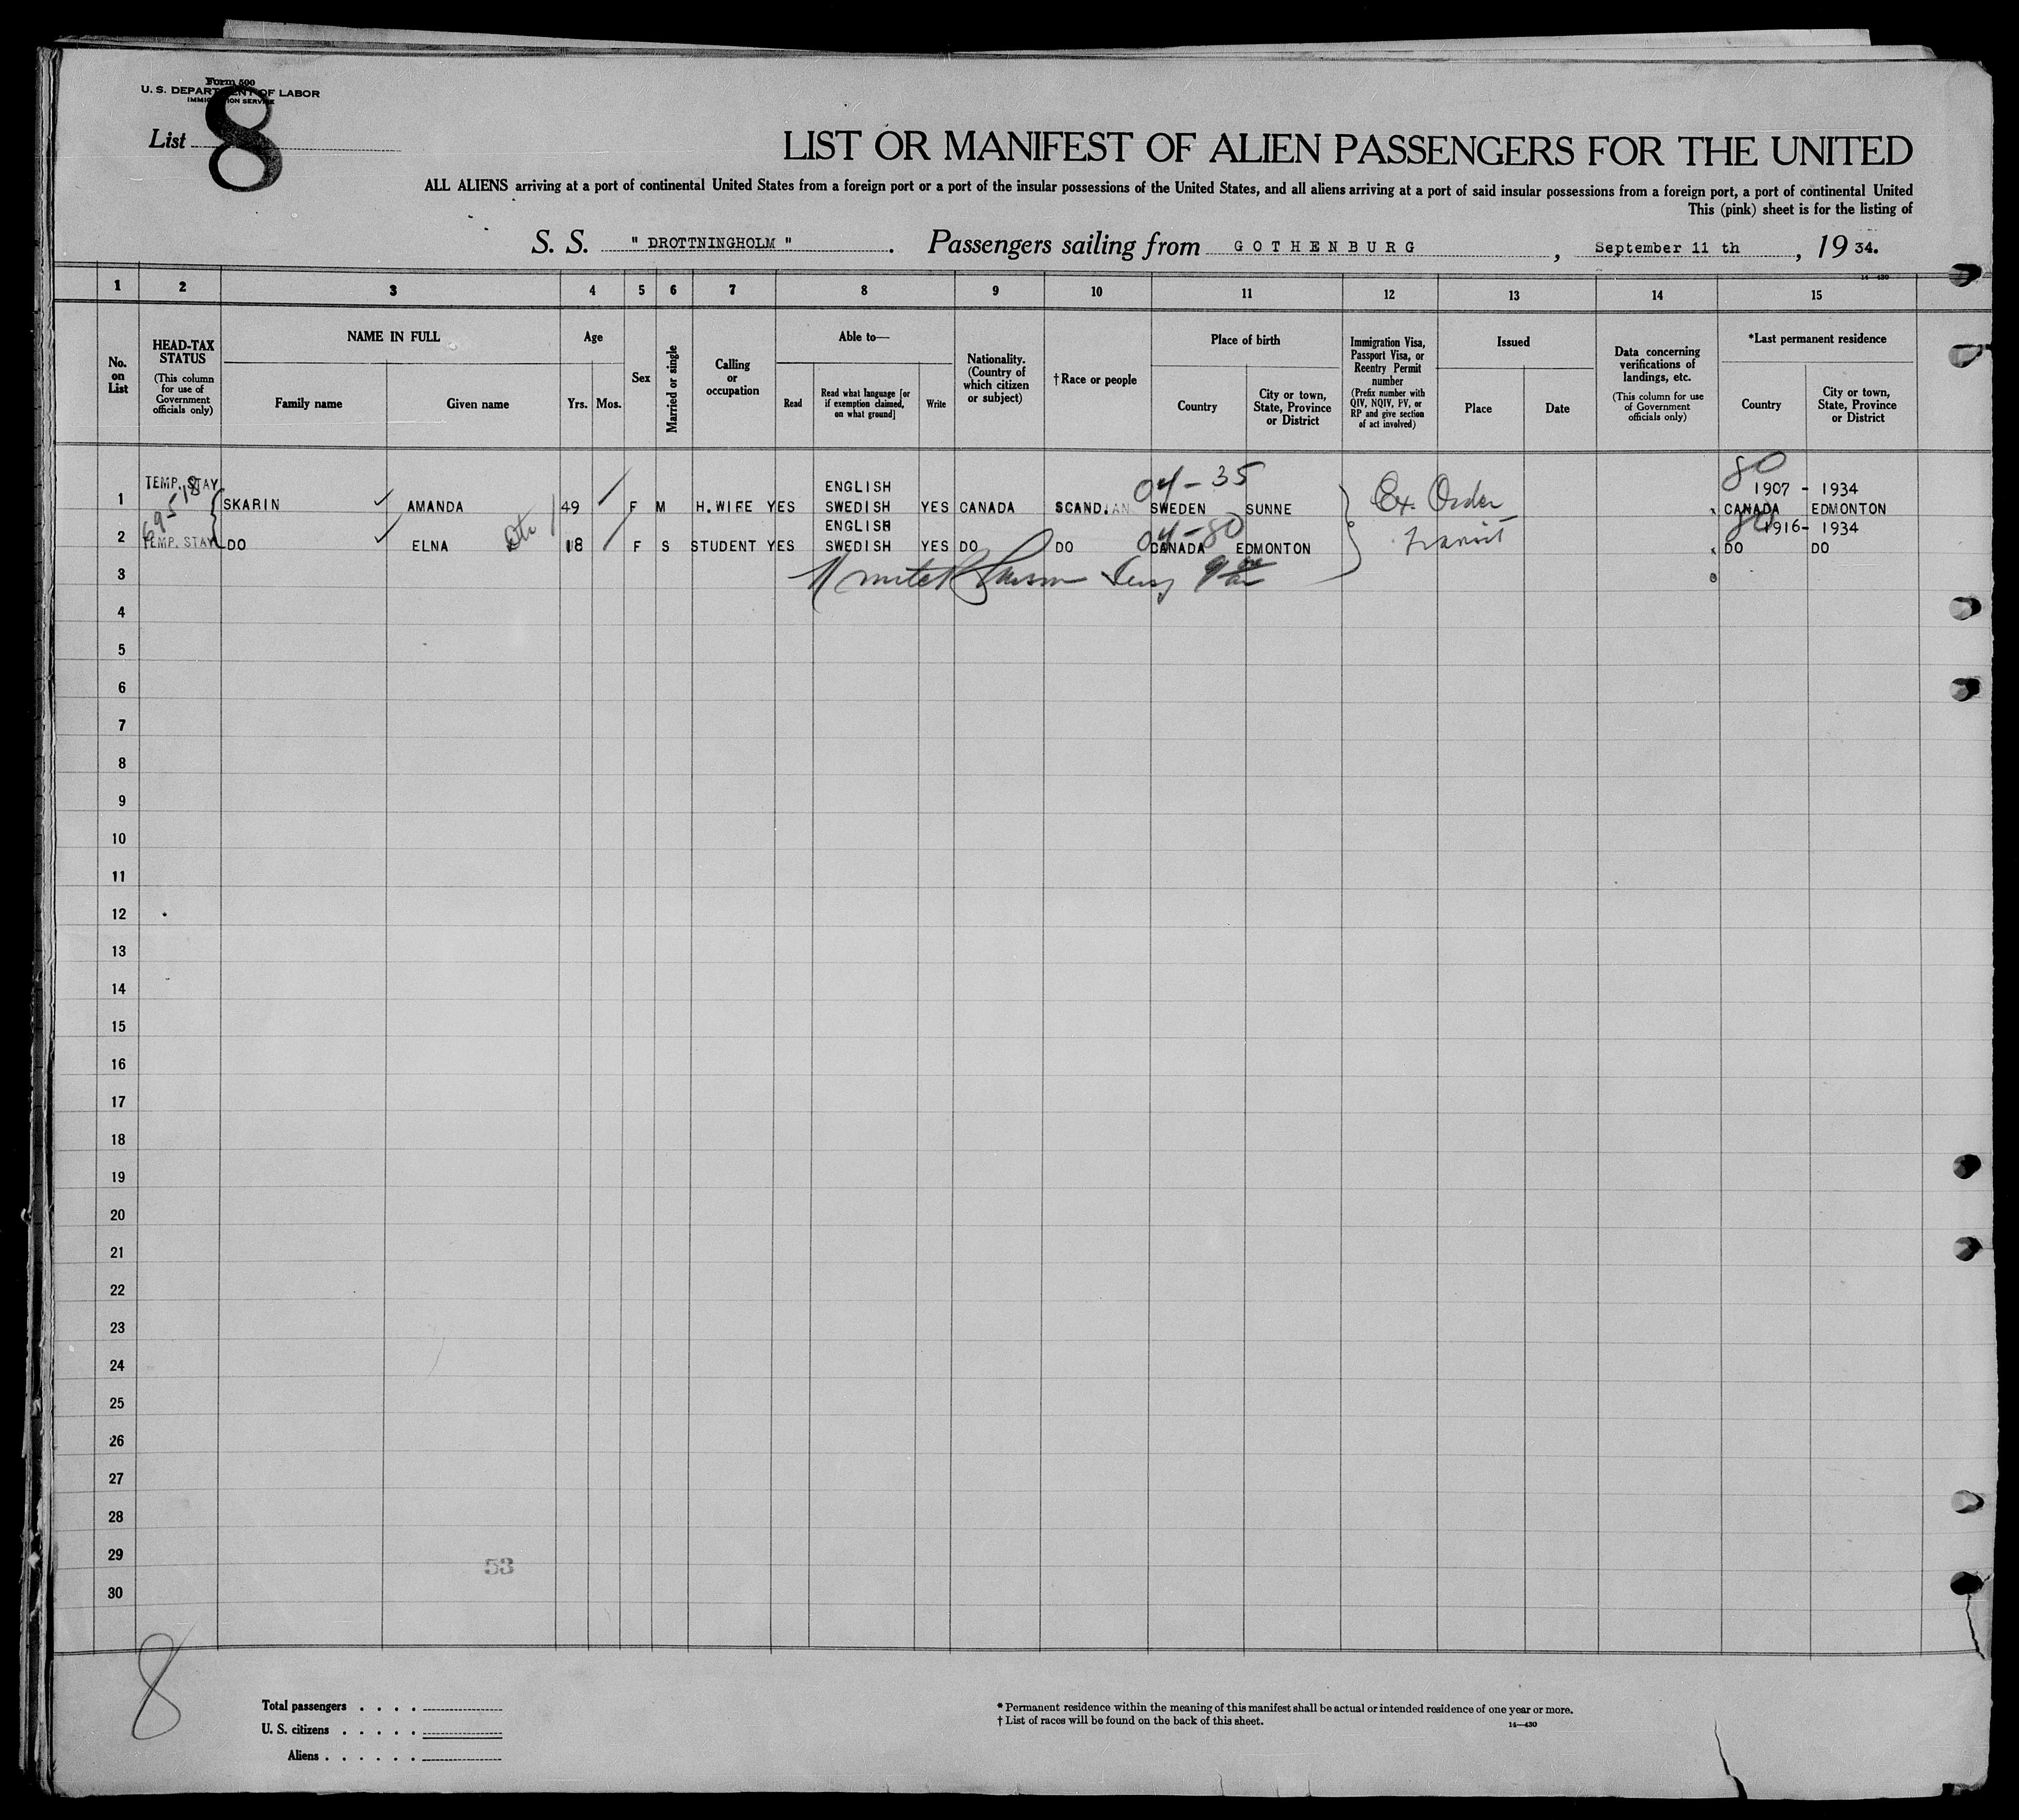 Form 500
U. S. DEPARTMENT OF LABOR
IMMIGRATION SERVICE
List 8
LIST OR MANIFEST OF ALIEN PASSENGERS FOR THE UNITED
ALL ALIENS arriving at a port of continental United States from a foreign port or a port of the insular possessions of the United States, and all aliens arriving at a port of said insular possessions from a foreign port, a port of continental United
This (pink) sheet is for the listing of
S. S. " DROTTNINGHOLM " . Passengers sailing from GOTHENBURG , September 11 th , 19 34.
14-430
1 2 3 4 5 6 7 8 9 10 11 12 13 14 15
No. on List
HEAD-TAX STATUS
(This column for use of Government officials only)
NAME IN FULL
Family name
Given name
Age
Yrs. Mos.
Sex
Married or single
Calling or occupation
Able to—
Read
Read what language [or if exemption claimed, on what ground]
Write
Nationality. (Country of which citizen or subject)
† Race or people
Place of birth
Country
City or town, State, Province or District
Immigration Visa, Passport Visa, or Reentry Permit number
(Prefix number with QIV, NQIV, PV, or RP and give section of act involved)
Issued
Place
Date
Data concerning verifications of landings, etc.
(This column for use of Government officials only)
*Last permanent residence
Country
City or town, State, Province or District
TEMP. STAY ENGLISH 04-35 80 1907 - 1934
1 SKARIN AMANDA 49 F M H.WIFE YES SWEDISH YES CANADA SCAND.IAN SWEDEN SUNNE Ex. Order CANADA EDMONTON
695-18 ENGLISH 04-80 80 1916- 1934
2 TEMP. STAY DO ELNA 18 F S STUDENT YES SWEDISH YES DO DO CANADA EDMONTON Transit DO DO
3
4
5
6
7
8
9
10
11
12
13
14
15
16
17
18
19
20
21
22
23
24
25
26
27
28
29
53
30
8
Total passengers . . . .
U. S. citizens . . . . .
Aliens . . . . . .
* Permanent residence within the meaning of this manifest shall be actual or intended residence of one year or more.
† List of races will be found on the back of this sheet.
14—430